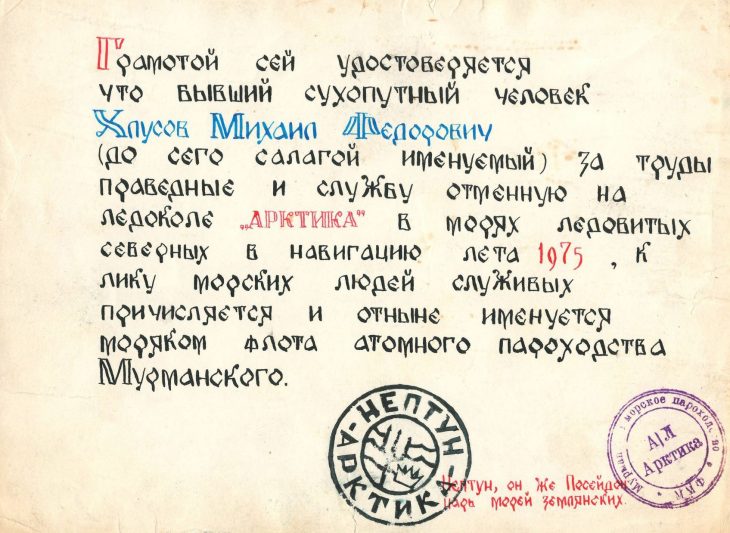 Грамотой сей удостоверяется
что бывший сухопутный человек
Хлусов Михаил Федорович
(до сего салагой именуемый) за труды
праведные и службу отменную на
ледоколе „АРКТИКА" в морях ледовитых
северных в навигацию лета 1975 , к
лику морских людей служивых
причисляется и отныне именуется
моряком флота атомного пароходства
Мурманского.
НЕПТУН
АРКТИКА
Нептун, он же Посейдон
царь морей землянских.
морское пароходство
А/Л
Арктика